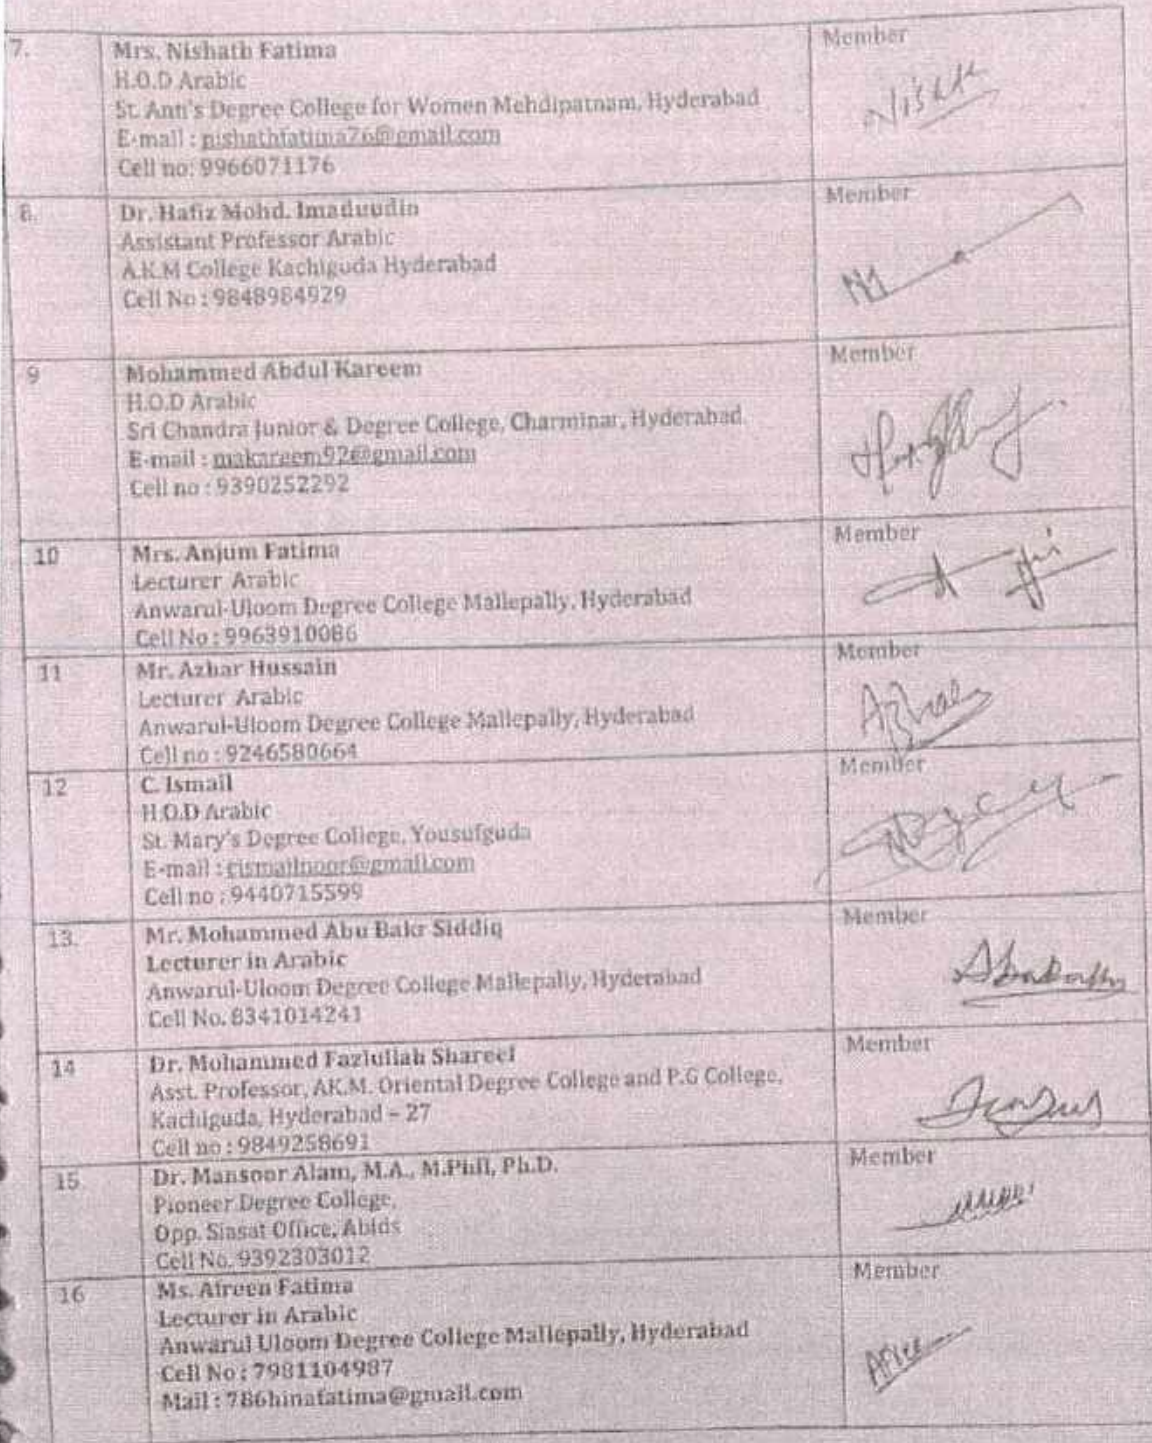 7.
Mrs. Nishath Fatima
H.O.D Arabic
St. Ann's Degree College for Women Mehdipatnam, Hyderabad
E-mail : nishathfatima76@gmail.com
Cell no: 9966071176
Member
Nishath
8.
Dr. Hafiz Mohd. Imaduudin
Assistant Professor Arabic
A.K.M College Kachiguda Hyderabad
Cell No : 9848984929
Member
9
Mohammed Abdul Kareem
H.O.D Arabic
Sri Chandra Junior & Degree College, Charminar, Hyderabad.
E-mail : makareem92@gmail.com
Cell no : 9390252292
Member
10
Mrs. Anjum Fatima
Lecturer Arabic
Anwarul-Uloom Degree College Mallepally, Hyderabad
Cell No : 9963910086
Member
11
Mr. Azhar Hussain
Lecturer Arabic
Anwarul-Uloom Degree College Mallepally, Hyderabad
Cell no : 9246580664
Member
Azhar
12
C. Ismail
H.O.D Arabic
St. Mary's Degree College, Yousufguda
E-mail : cismailnoor@gmail.com
Cell no : 9440715599
Member
13.
Mr. Mohammed Abu Bakr Siddiq
Lecturer in Arabic
Anwarul-Uloom Degree College Mallepally, Hyderabad
Cell No. 8341014241
Member
14
Dr. Mohammed Fazlullah Shareef
Asst. Professor, AK.M. Oriental Degree College and P.G College,
Kachiguda, Hyderabad – 27
Cell no : 9849258691
Member
15
Dr. Mansoor Alam, M.A., M.Phil, Ph.D.
Pioneer Degree College,
Opp. Siasat Office, Abids
Cell No. 9392303012
Member
16
Ms. Afreen Fatima
Lecturer in Arabic
Anwarul Uloom Degree College Mallepally, Hyderabad
Cell No : 7981104987
Mail : 786hinafatima@gmail.com
Member